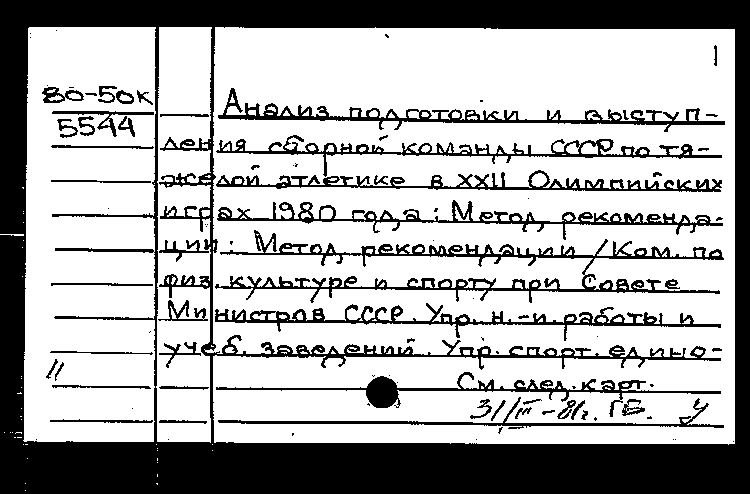 1
80-50к
5544
Анализ подготовки и выступ-
ления сборной команды СССР по тя-
желой атлетике в XXII Олимпийских
играх 1980 года: Метод, рекоменда-
ции: Метод, рекомендации / Ком. по
физ. культуре и спорту при Совете
Министров СССР. Упр. н.-и. работы и
учеб. заведений. Упр. спорт. едино-
11
См. след. карт.
31/III-81г. ГБ. У